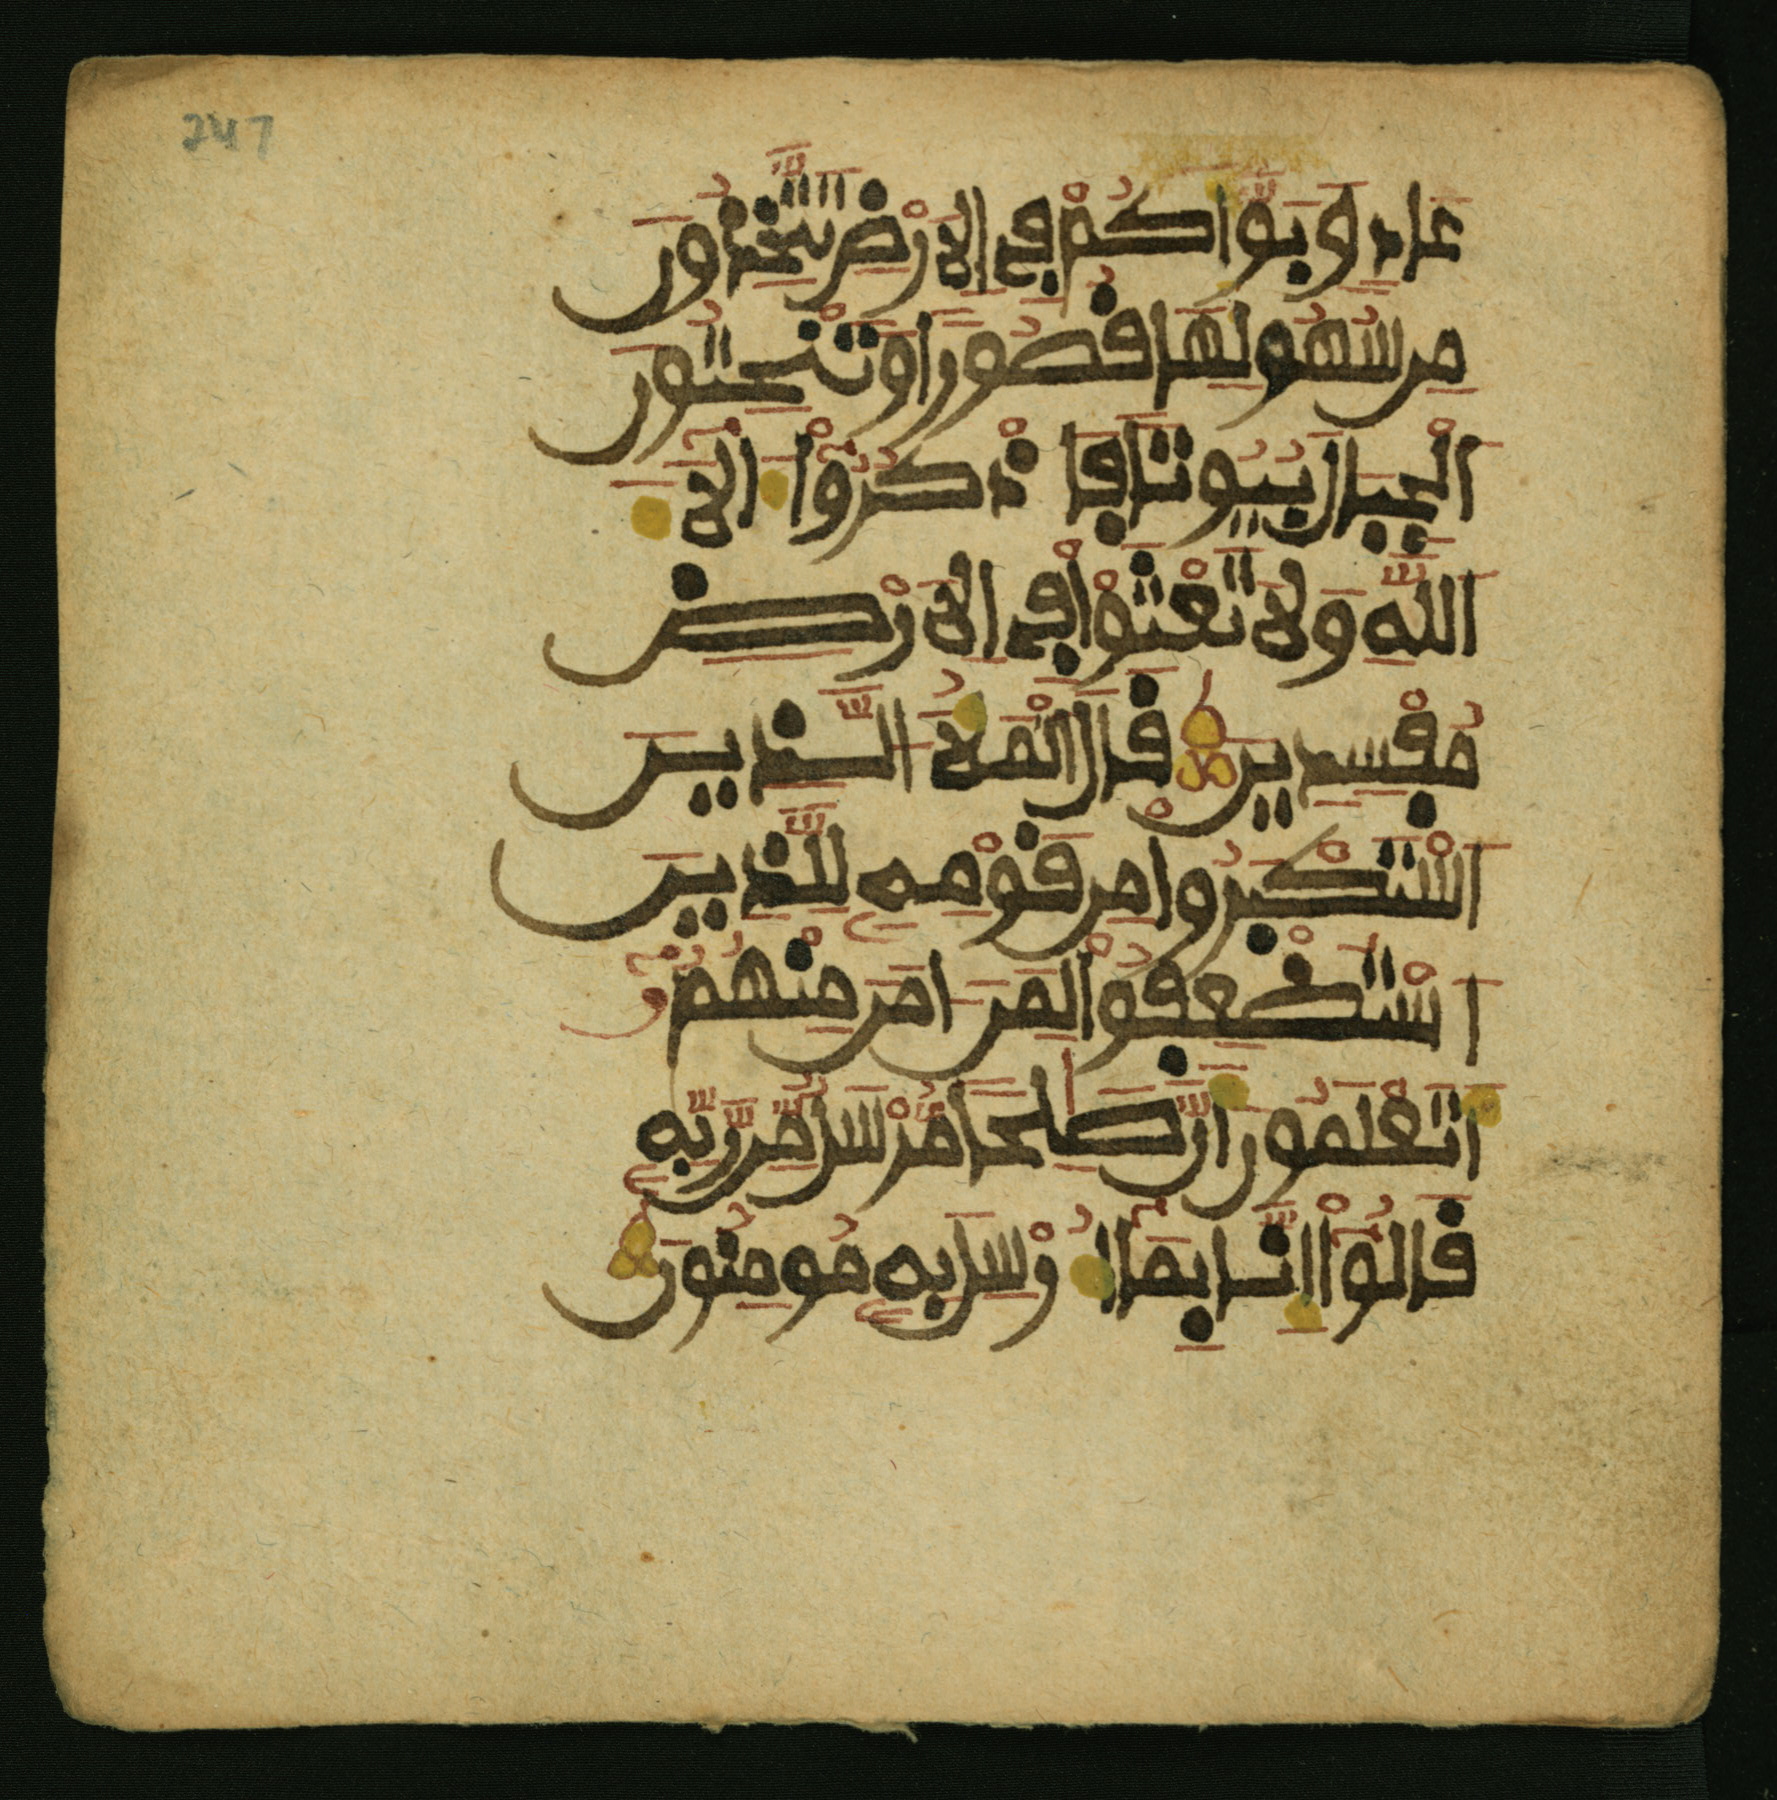 247
عَادٖ وَبَوَّأَكُمْ فِے اِ۬لَارْضِ تَتَّخِذُونَ
مِن سُهُولِهَا قُصُوراٗ وَتَنْحِتُونَ
اَ۬لْجِبَالَ بُيُوتاٗ فَاذْكُرُوٓاْ ءَالَآءَ
اَ۬للَّهِ وَلَا تَعْثَوْاْ فِے اِ۬لَارْضِ
مُفْسِدِينَ قَالَ اَ۬لْمَلَأُ اُ۬لذِينَ
اَ۪سْتَكْبَرُواْ مِن قَوْمِهِۦ لِلذِينَ
اَ۟سْتُضْعِفُواْ لِمَنَ اٰمَنَ مِنْهُمُۥٓ
أَتَعْلَمُونَ أَنَّ صَٰلِحاٗ مُّرْسَلٞ مِّن رَّبِّهِۦ
قَالُوٓاْ إِنَّا بِمَآ أُرْسِلَ بِهِۦ مُومِنُونَ